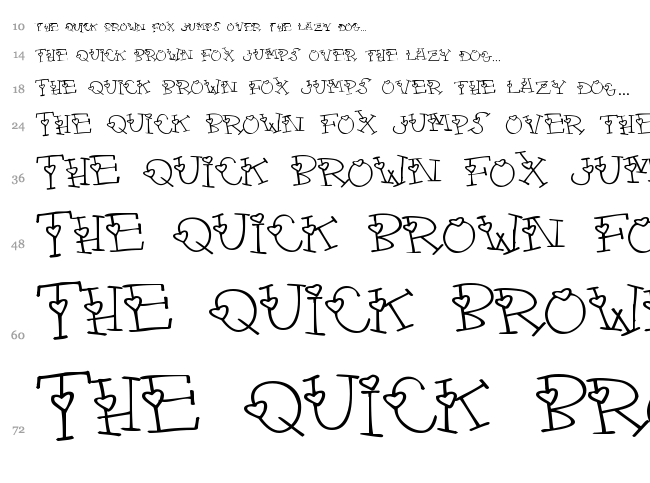 10 THE QUICK BROWN FOX JUMPS OVER THE LAZY DOG...
14 THE QUICK BROWN FOX JUMPS OVER THE LAZY DOG...
18 THE QUICK BROWN FOX JUMPS OVER THE LAZY DOG...
24 THE QUICK BROWN FOX JUMPS OVER THE
36 THE QUICK BROWN FOX JUM
48 THE QUICK BROWN FO
60 THE QUICK BROWN
72 THE QUICK BRO